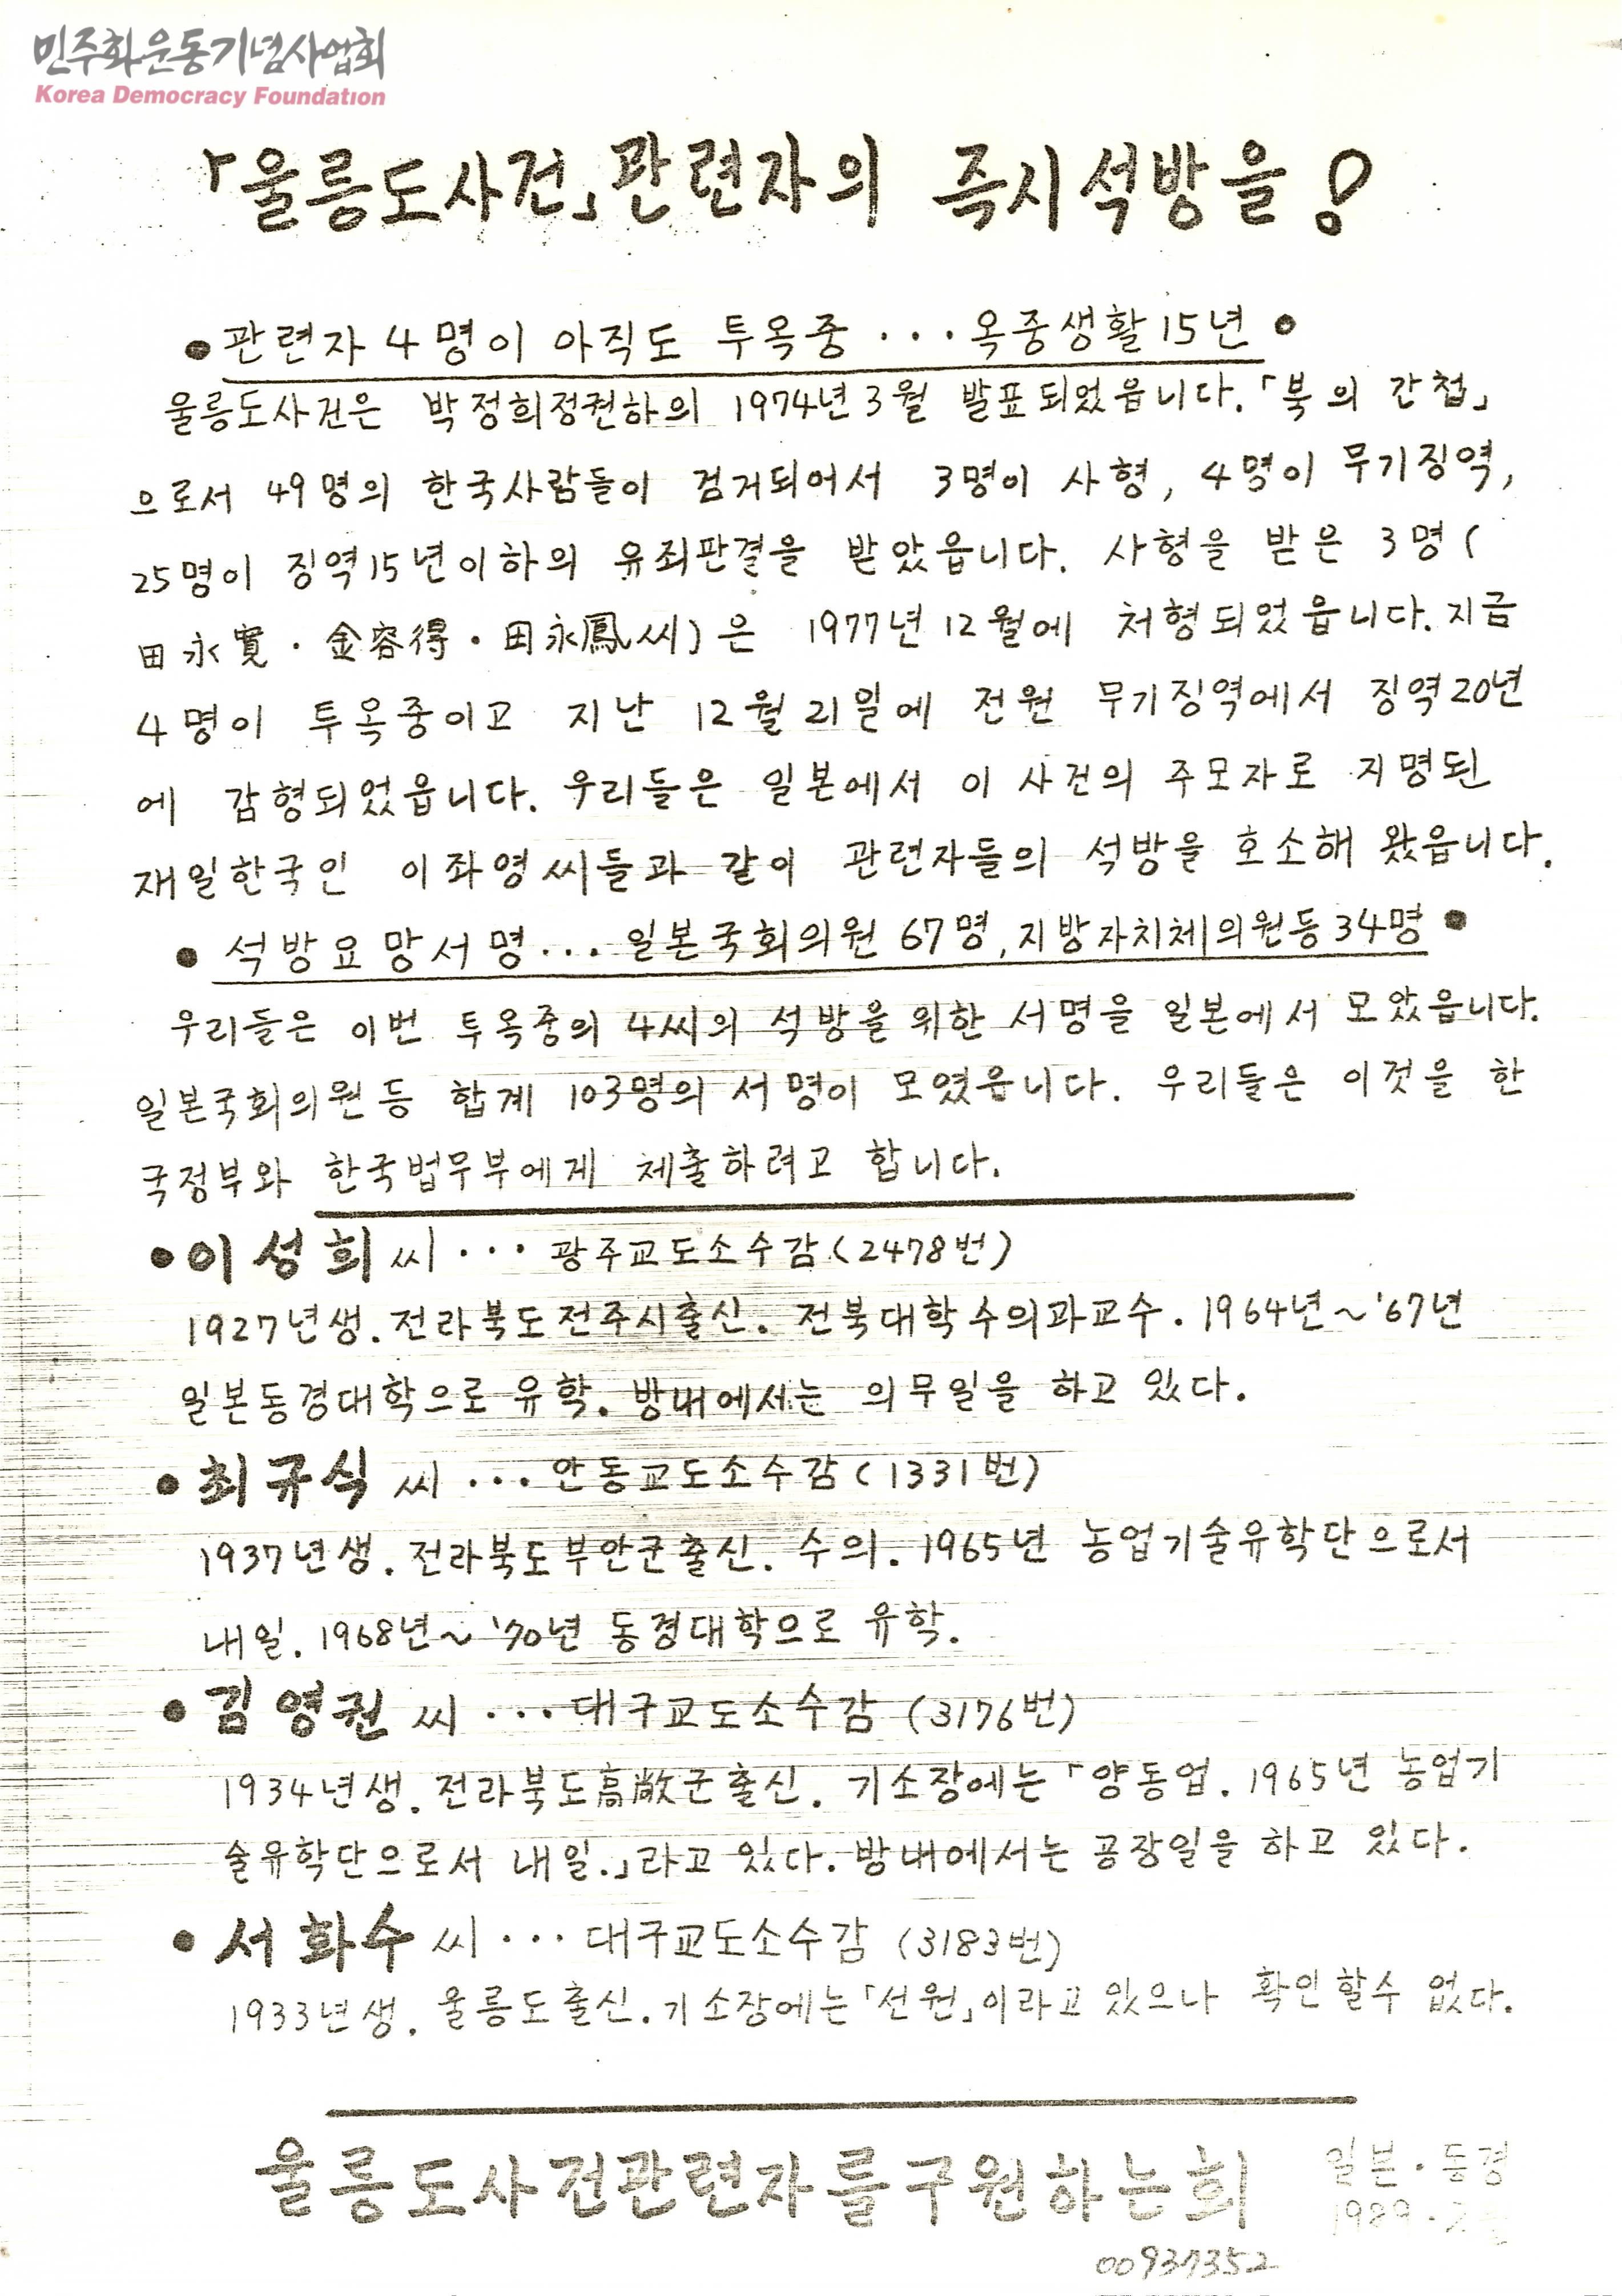 민주화운동기념사업회
Korea Democracy Foundation
「울릉도사건」관련자의 즉시석방을!
●관련자 4명이 아직도 투옥중 ··· 옥중생활 15년●
울릉도사건은 박정희정권하의 1974년 3월 발표되었읍니다.「북의 간첩」
으로서 49명의 한국사람들이 검거되어서 3명이 사형, 4명이 무기징역,
25명이 징역15년이하의 유죄판결을 받았읍니다. 사형을 받은 3명(
田永寛·金容得·田永鳳씨)은 1977년 12월에 처형되었읍니다. 지금
4명이 투옥중이고 지난 12월 21일에 전원 무기징역에서 징역20년
에 감형되었읍니다. 우리들은 일본에서 이 사건의 주모자로 지명된
재일한국인 이좌영씨들과 같이 관련자들의 석방을 호소해 왔읍니다.
● 석방요망서명 ··· 일본국회의원 67명, 지방자치체의원등 34명 ●
우리들은 이번 투옥중의 4씨의 석방을 위한 서명을 일본에서 모았읍니다.
일본국회의원등 합계 103명의 서명이 모였읍니다. 우리들은 이것을 한
국정부와 한국법무부에게 제출하려고 합니다.
●이성희씨 ··· 광주교도소수감(2478번)
1927년생. 전라북도전주시출신. 전북대학수의과교수. 1964년~'67년
일본동경대학으로 유학. 방내에서는 의무일을 하고 있다.
●최규식 씨 ··· 안동교도소수감(1331번)
1937년생. 전라북도부안군출신. 수의. 1965년 농업기술유학단으로서
내일. 1968년~'70년 동경대학으로 유학.
●김영권 씨 ··· 대구교도소수감 (3176번)
1934년생. 전라북도高敞군출신. 기소장에는「양동업. 1965년 농업기
술유학단으로서 내일.」라고 있다. 방내에서는 공장일을 하고 있다.
●서화수 씨 ··· 대구교도소수감 (3183번)
1933년생. 울릉도출신. 기소장에는「선원」이라고 있으나 확인할수 없다.
울릉도사건관련자를구원하는회
일본·동경
1989.2월
00937352